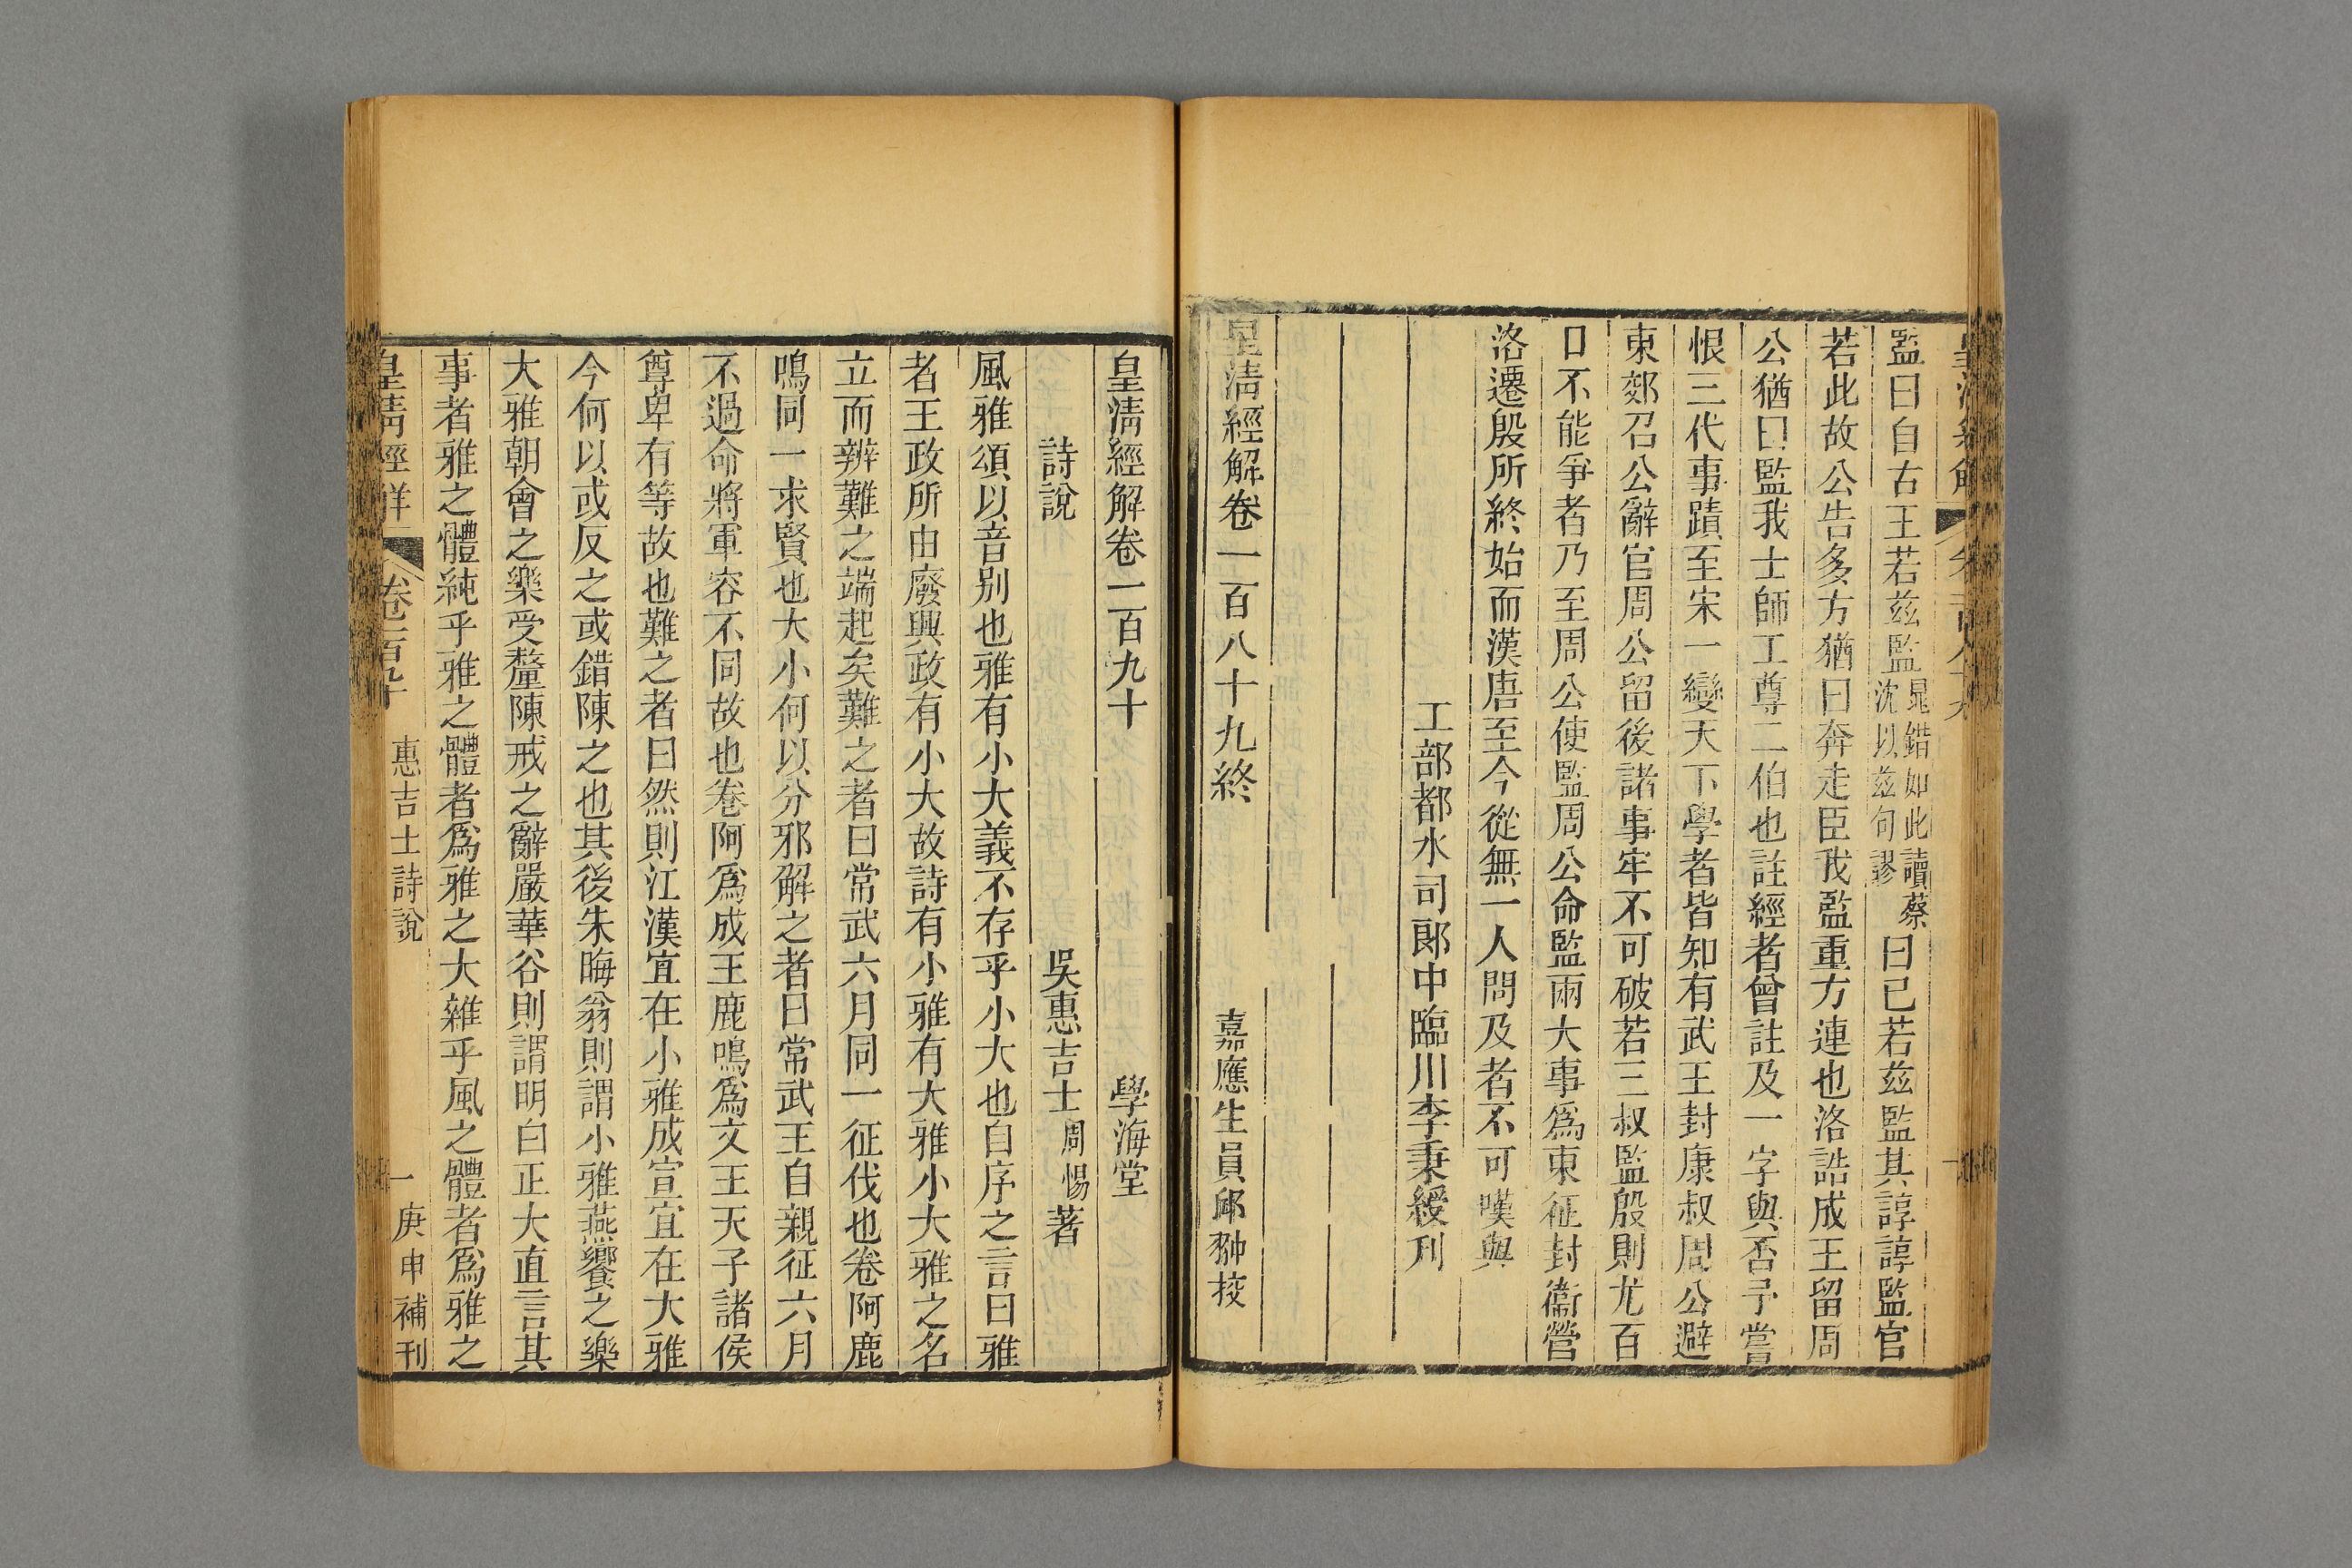 監曰自古王若茲監晁錯如此讀蔡沈以茲句謬曰已若茲監其諄諄監官
若此故公告多方猶曰奔走臣我監重方連也洛誥成王留周
公猶曰監我士師工尊二伯也註經者曾註及一字與否予嘗
恨三代事蹟至宋一變天下學者皆知有武王封康叔周公避
東郊召公辭官周公留後諸事牢不可破若三叔監殷則尤百
口不能爭者乃至周公使監周公命監兩大事爲東征封衞營
洛遷殷所終始而漢唐至今從無一人問及者不可嘆與
工部都水司郎中臨川李秉綬刊
皇淸經解卷一百八十九終
嘉應生員邱翀挍
皇淸經解卷一百九十
學海堂
詩說
吳惠吉士周惕著
風雅頌以音別也雅有小大義不存乎小大也自序之言曰雅
者王政所由廢興政有小大故詩有小雅有大雅小大雅之名
立而辨難之端起矣難之者曰常武六月同一征伐也卷阿鹿
鳴同一求賢也大小何以分邪解之者曰常武王自親征六月
不過命將軍容不同故也卷阿爲成王鹿鳴爲文王天子諸侯
尊卑有等故也難之者曰然則江漢宜在小雅成宣宜在大雅
今何以或反之或錯陳之也其後朱晦翁則謂小雅燕饗之樂
大雅朝會之樂受釐陳戒之辭嚴華谷則謂明白正大直言其
事者雅之體純乎雅之體者爲雅之大雜乎風之體者爲雅之
皇淸經解 卷一百九十 惠吉士詩說 一 庚申補刊